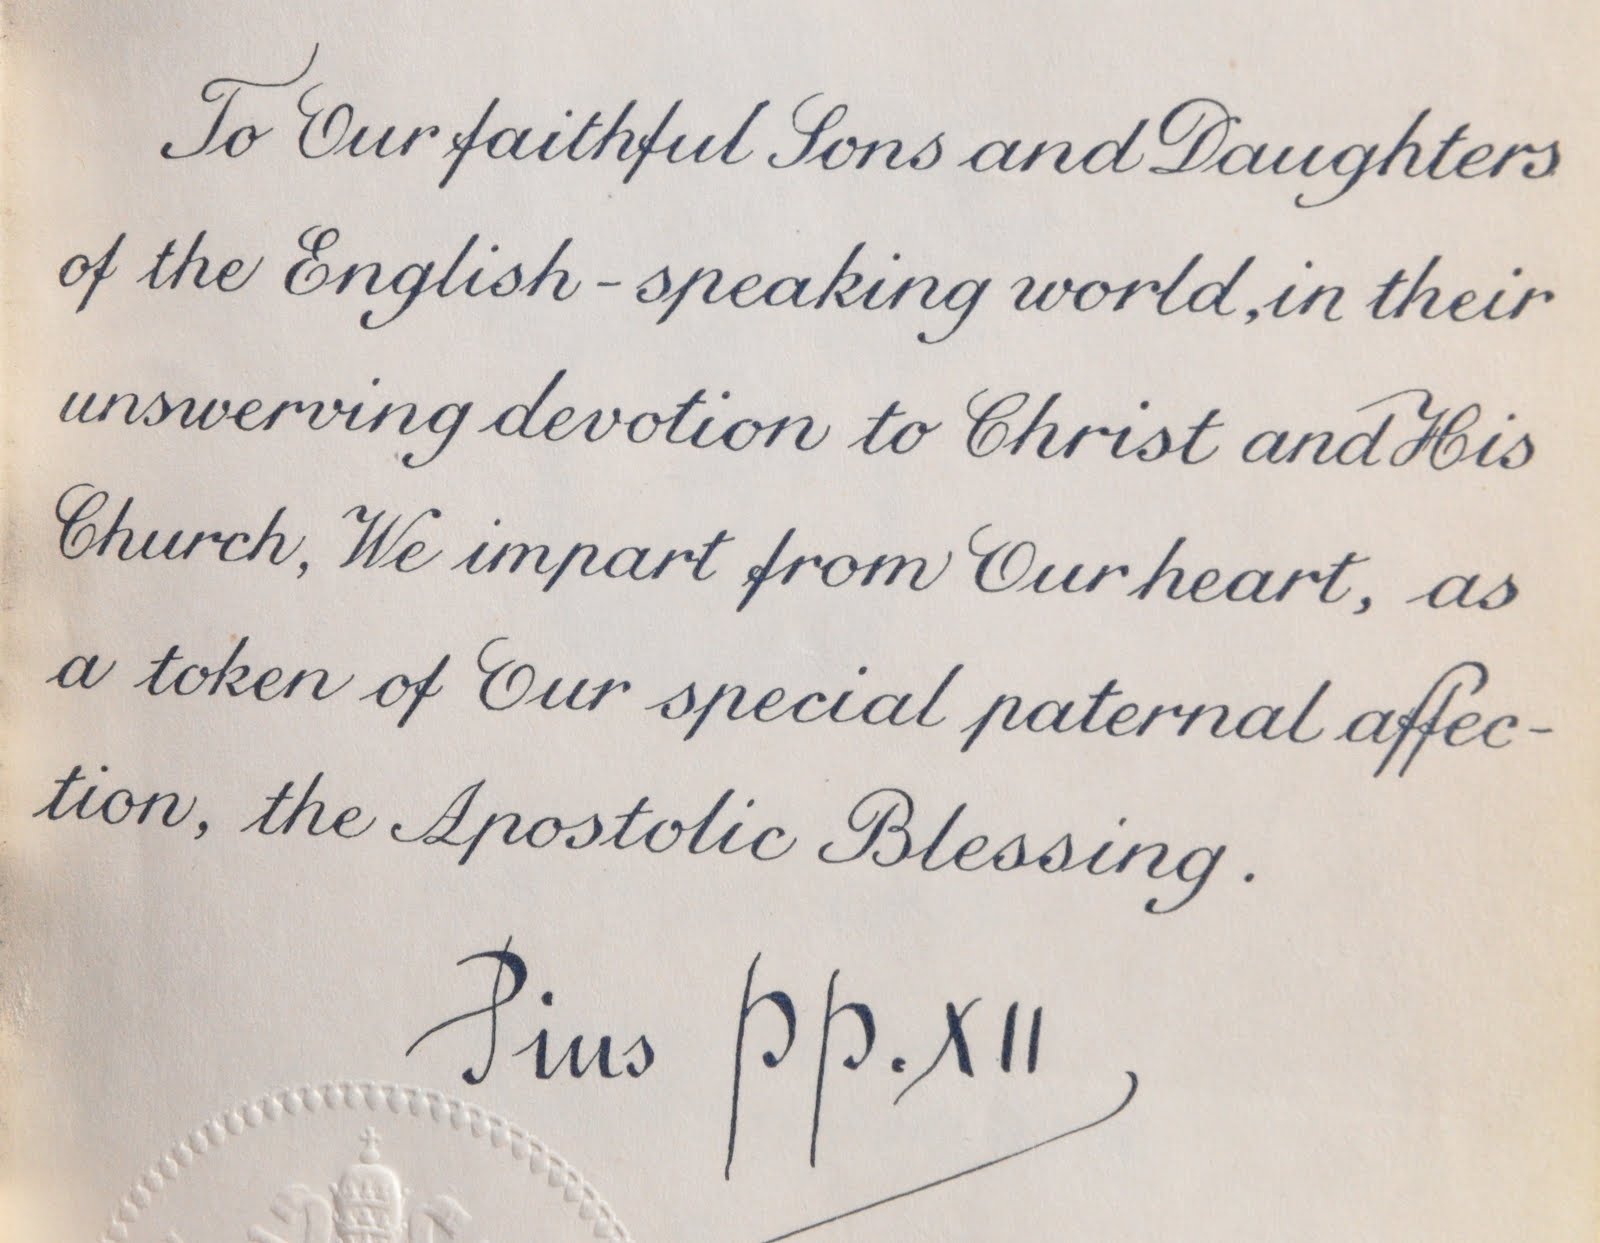 To Our faithful Sons and Daughters
of the English-speaking world, in their
unswerving devotion to Christ and His
Church, We impart from Our heart, as
a token of Our special paternal affec-
tion, the Apostolic Blessing.
Pius pp. XII